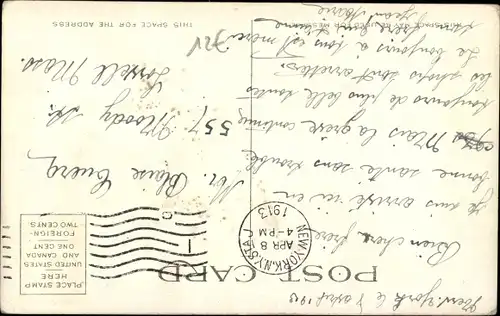 POST CARD
THIS SPACE FOR THE ADDRESS
PLACE STAMP
HERE
UNITED STATES
AND CANADA
ONE CENT
FOREIGN
TWO CENTS.
NEW YORK, N.Y. STA. J
APR 8
4-PM
1913
Mr. Blaise
557 Moody St.
Lowell Mass.
New-York le 7 avril 1913
Bien chère mère
je suis arrivé ici en
bonne santé sans trouble
Mais la grève continue
toujours de plus belle toutes
les shops sont arrêtées.
Le bonjour à tous et mère